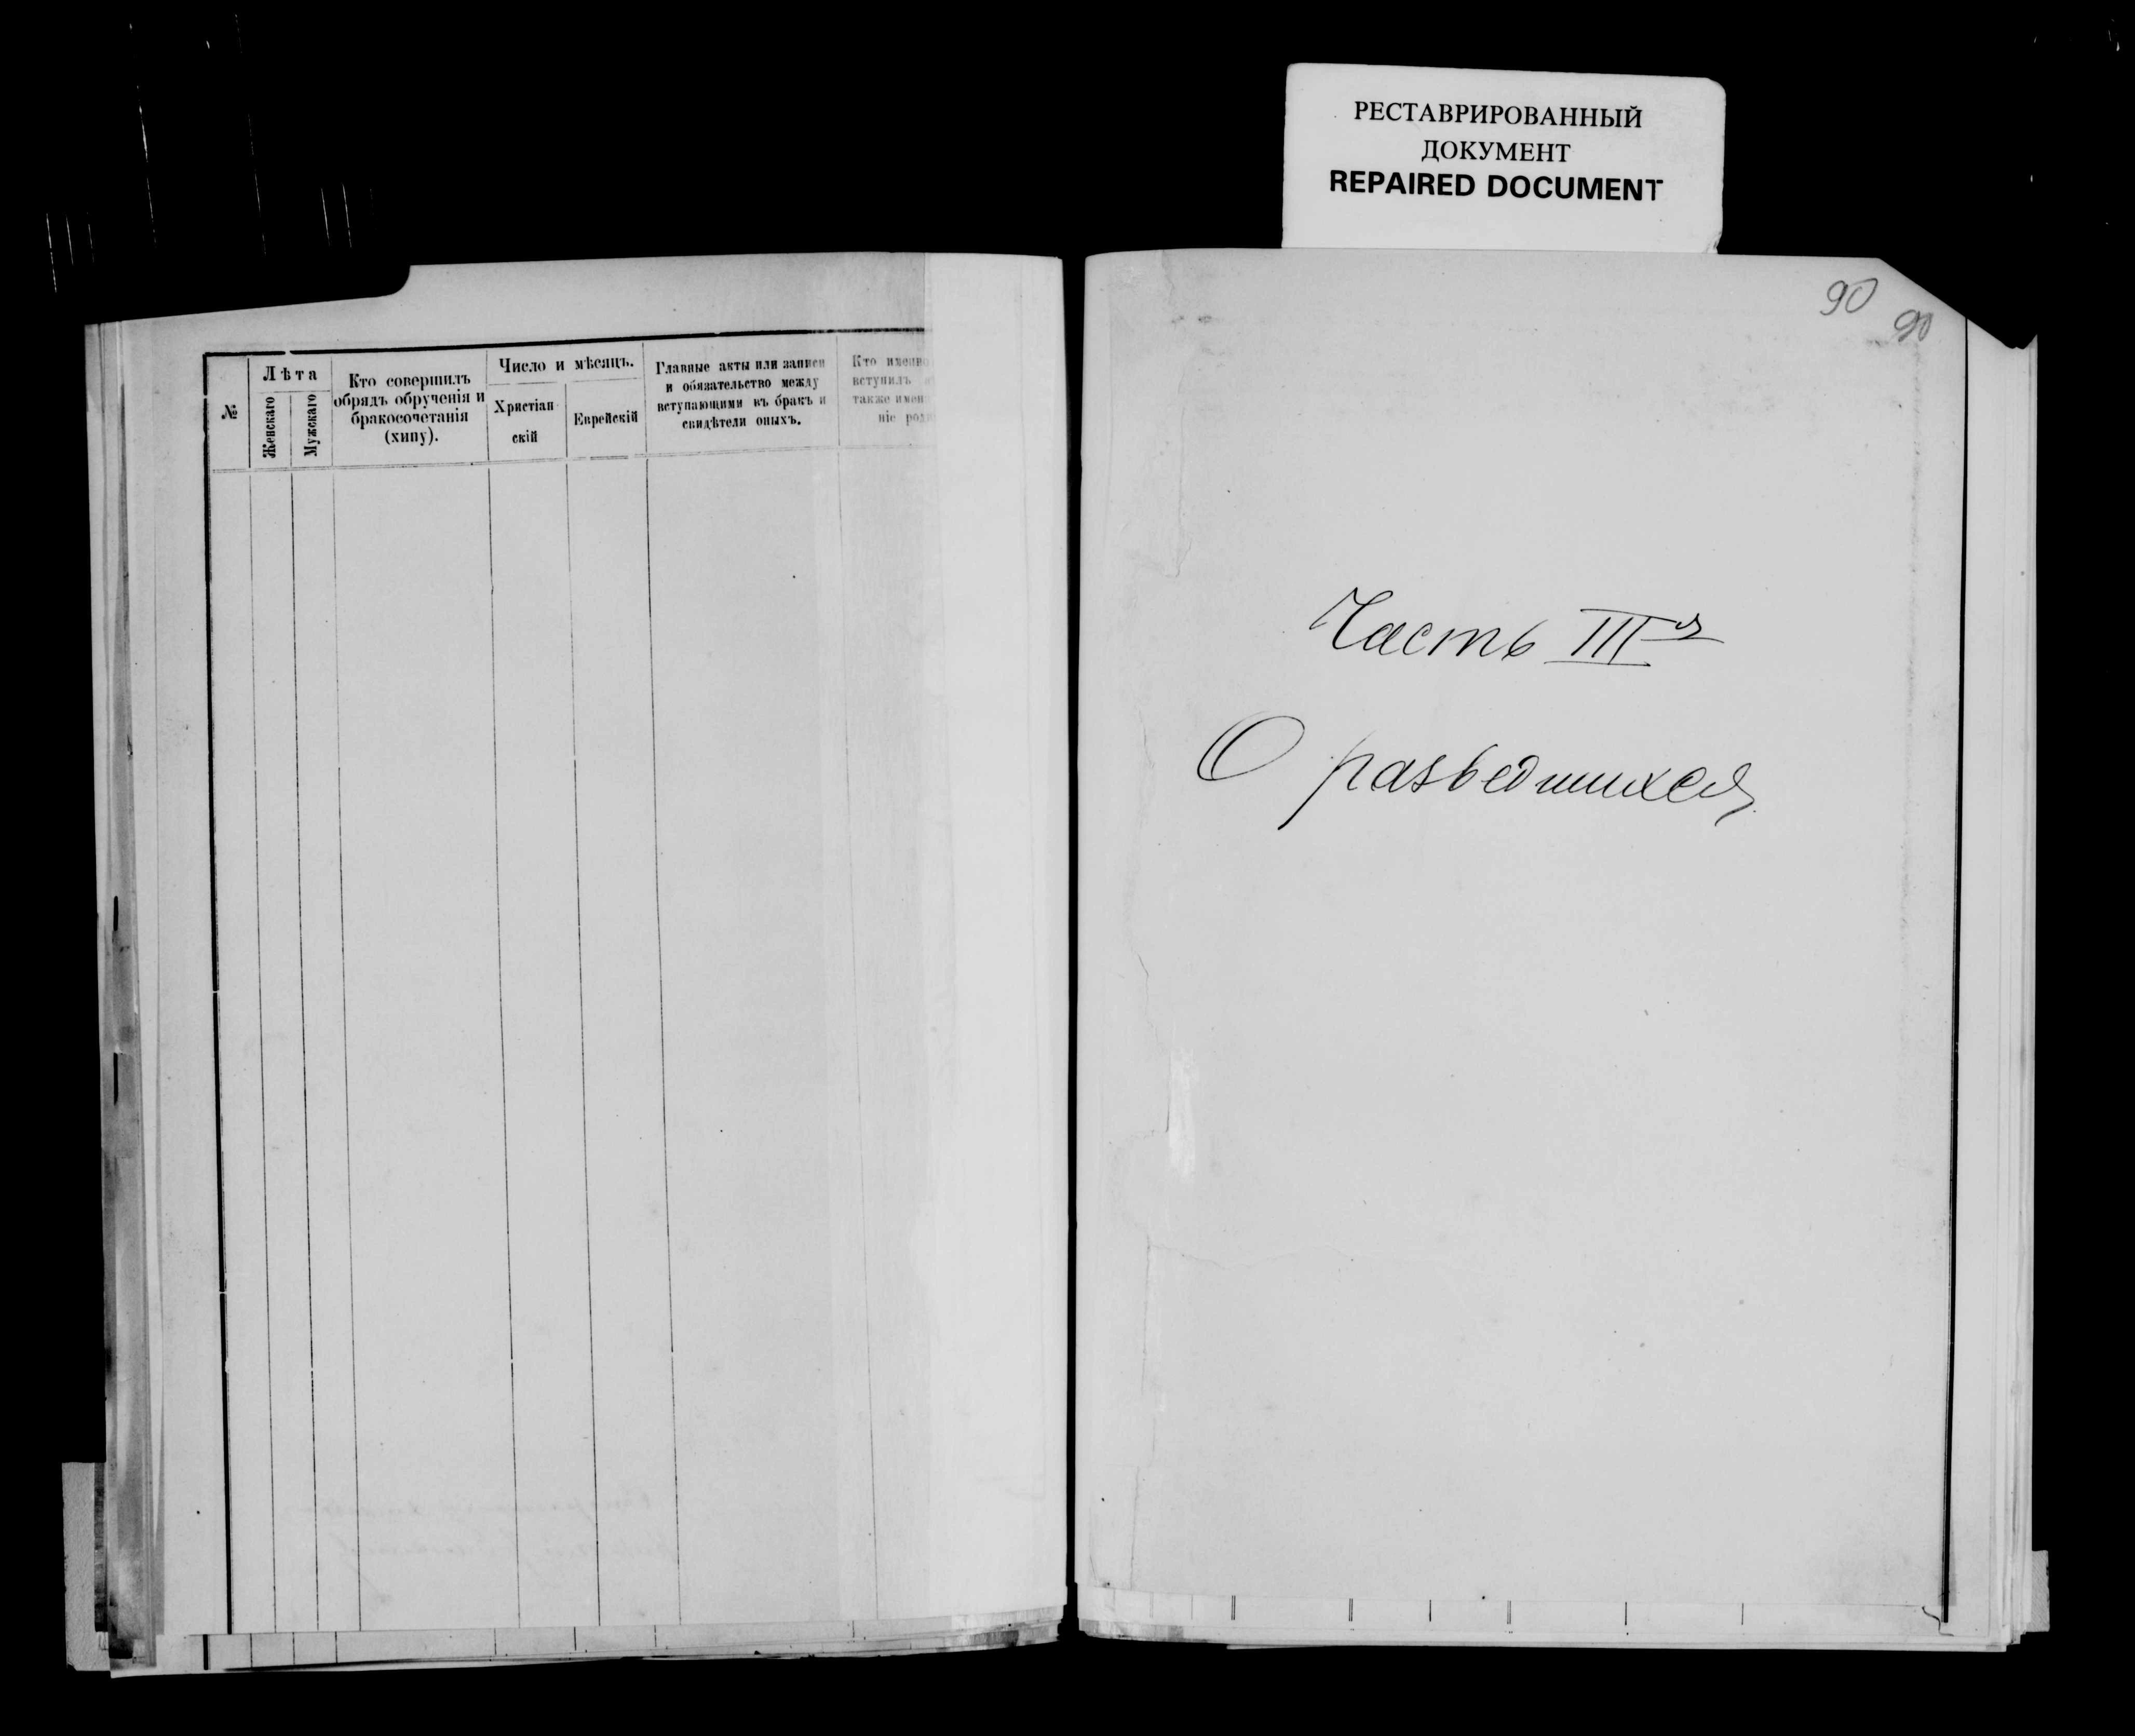 РЕСТАВРИРОВАННЫЙ
ДОКУМЕНТ
REPAIRED DOCUMENT
№
Лѣта
Женскаго
Мужскаго
Кто совершилъ
обрядъ обрученія и
бракосочетанія
(хипу).
Число и мѣсяцъ.
Христіан-
скій
Еврейскій
Главные акты или записи
и обязательство между
вступающими въ бракъ и
свидѣтели оныхъ.
Кто именно
вступилъ
также имен
ніе род
90
90
Часть IIIя
О разведшихся